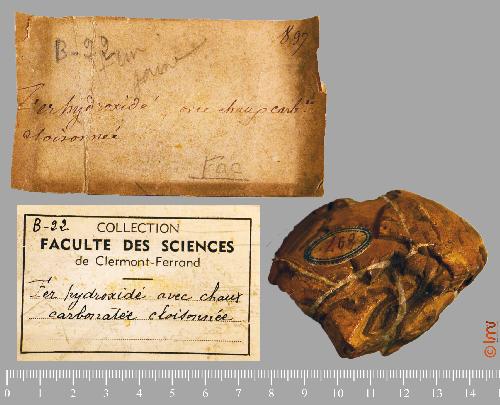 B-22
897
Fer hydroxidé, avec chaux carb.tée
cloisonnée
Fac
B-22
COLLECTION
FACULTE DES SCIENCES
de Clermont-Ferrand
Fer hydroxidé avec chaux
carbonatée cloisonnée
169
0 1 2 3 4 5 6 7 8 9 10 11 12 13 14
© lmv